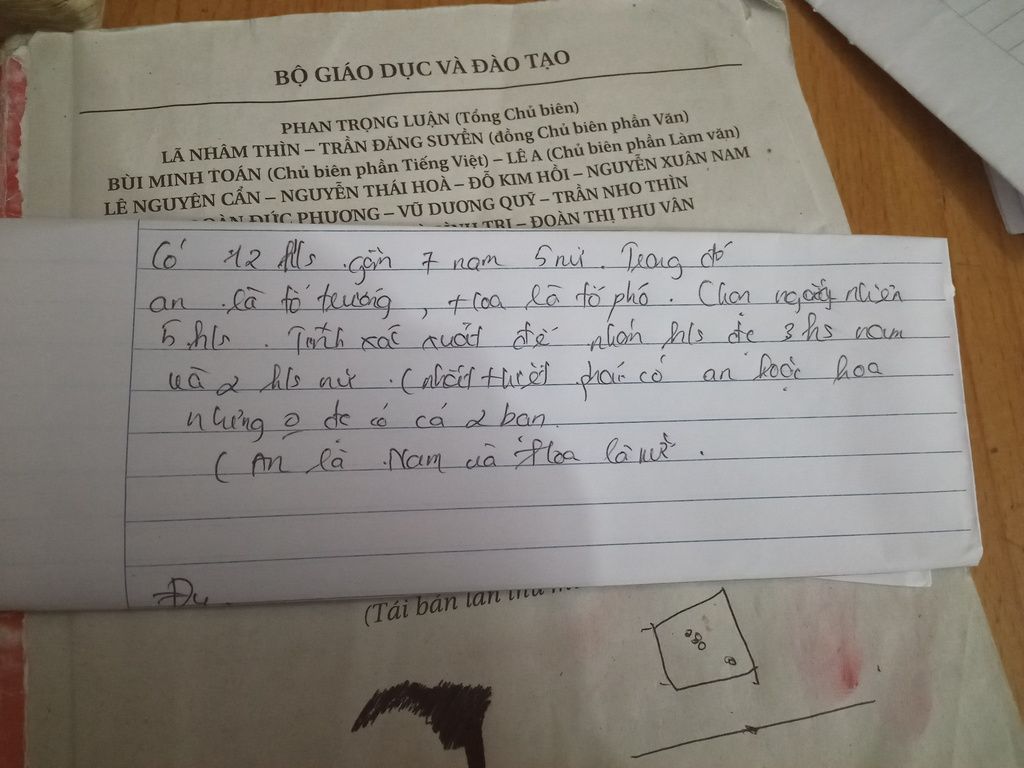 BỘ GIÁO DỤC VÀ ĐÀO TẠO
PHAN TRỌNG LUẬN (Tổng Chủ biên)
LÃ NHÂM THÌN – TRẦN ĐĂNG SUYỀN (đồng Chủ biên phần Văn)
BÙI MINH TOÁN (Chủ biên phần Tiếng Việt) – LÊ A (Chủ biên phần Làm văn)
LÊ NGUYÊN CẨN – NGUYỄN THÁI HOÀ – ĐỖ KIM HỒI – NGUYỄN XUÂN NAM
ĐỨC PHƯƠNG – VŨ DƯƠNG QUỸ – TRẦN NHO THÌN
TRI – ĐOÀN THỊ THU VÂN
Có 12 hs gồm 7 nam 5 nữ. Trong đó
an là tổ trưởng, Hoa là tổ phó. Chọn ngẫu nhiên
5 hs. Tính xác xuất để nhóm hs đc 3 hs nam
và 2 hs nữ. (nhất thiết phải có an hoặc hoa
nhưng o đc có cả 2 bạn.
( An là Nam và Hoa là nữ.
(Tái bản lần thứ